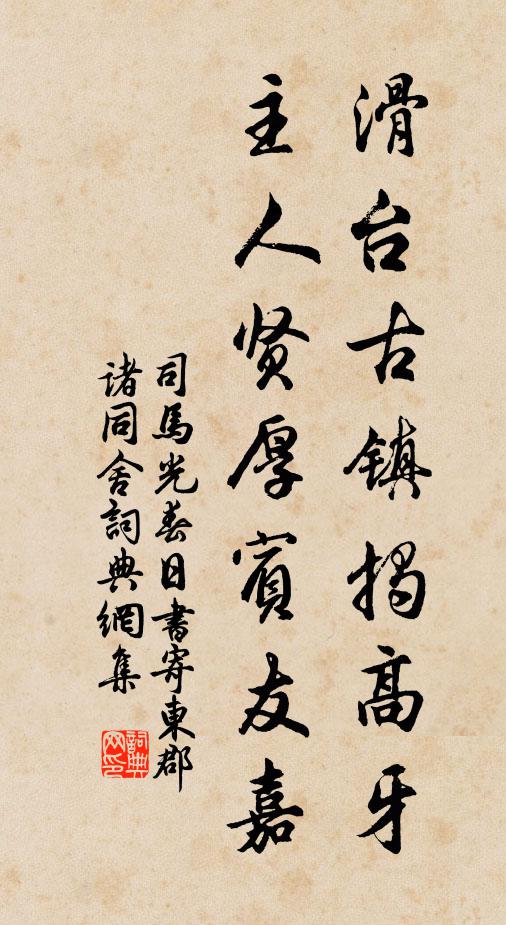 滑台古镇揭高牙
主人贤厚賓友嘉
司馬光春日書寄東郡
諸同舍詞典網集
詞典网印